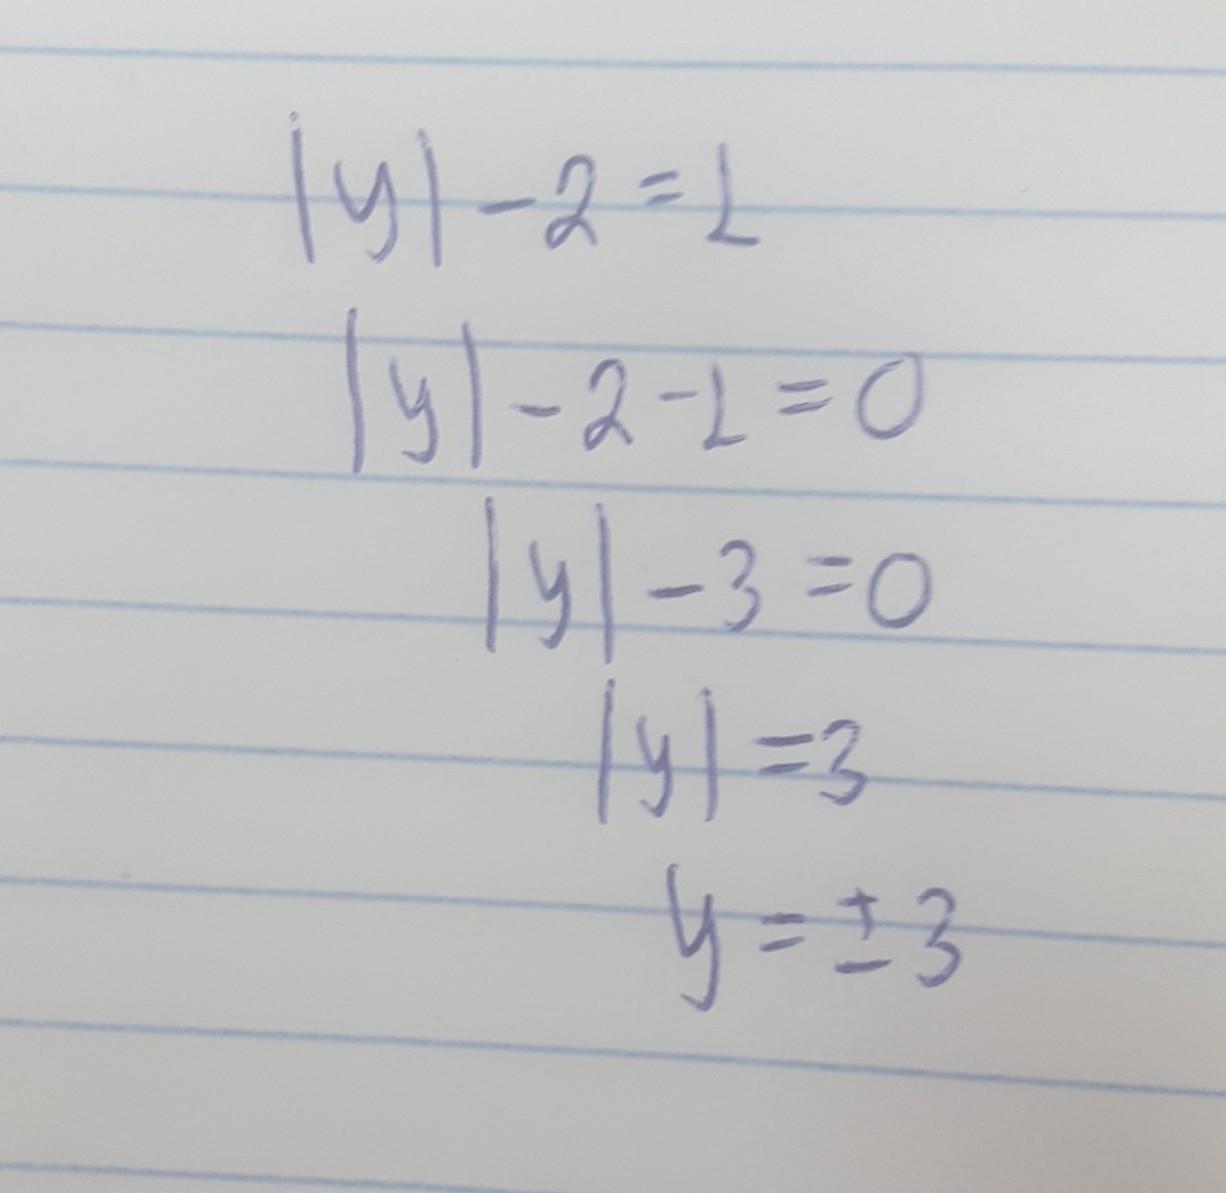 |y| - 2 = 1
|y| - 2 - 1 = 0
|y| - 3 = 0
|y| = 3
y = ± 3